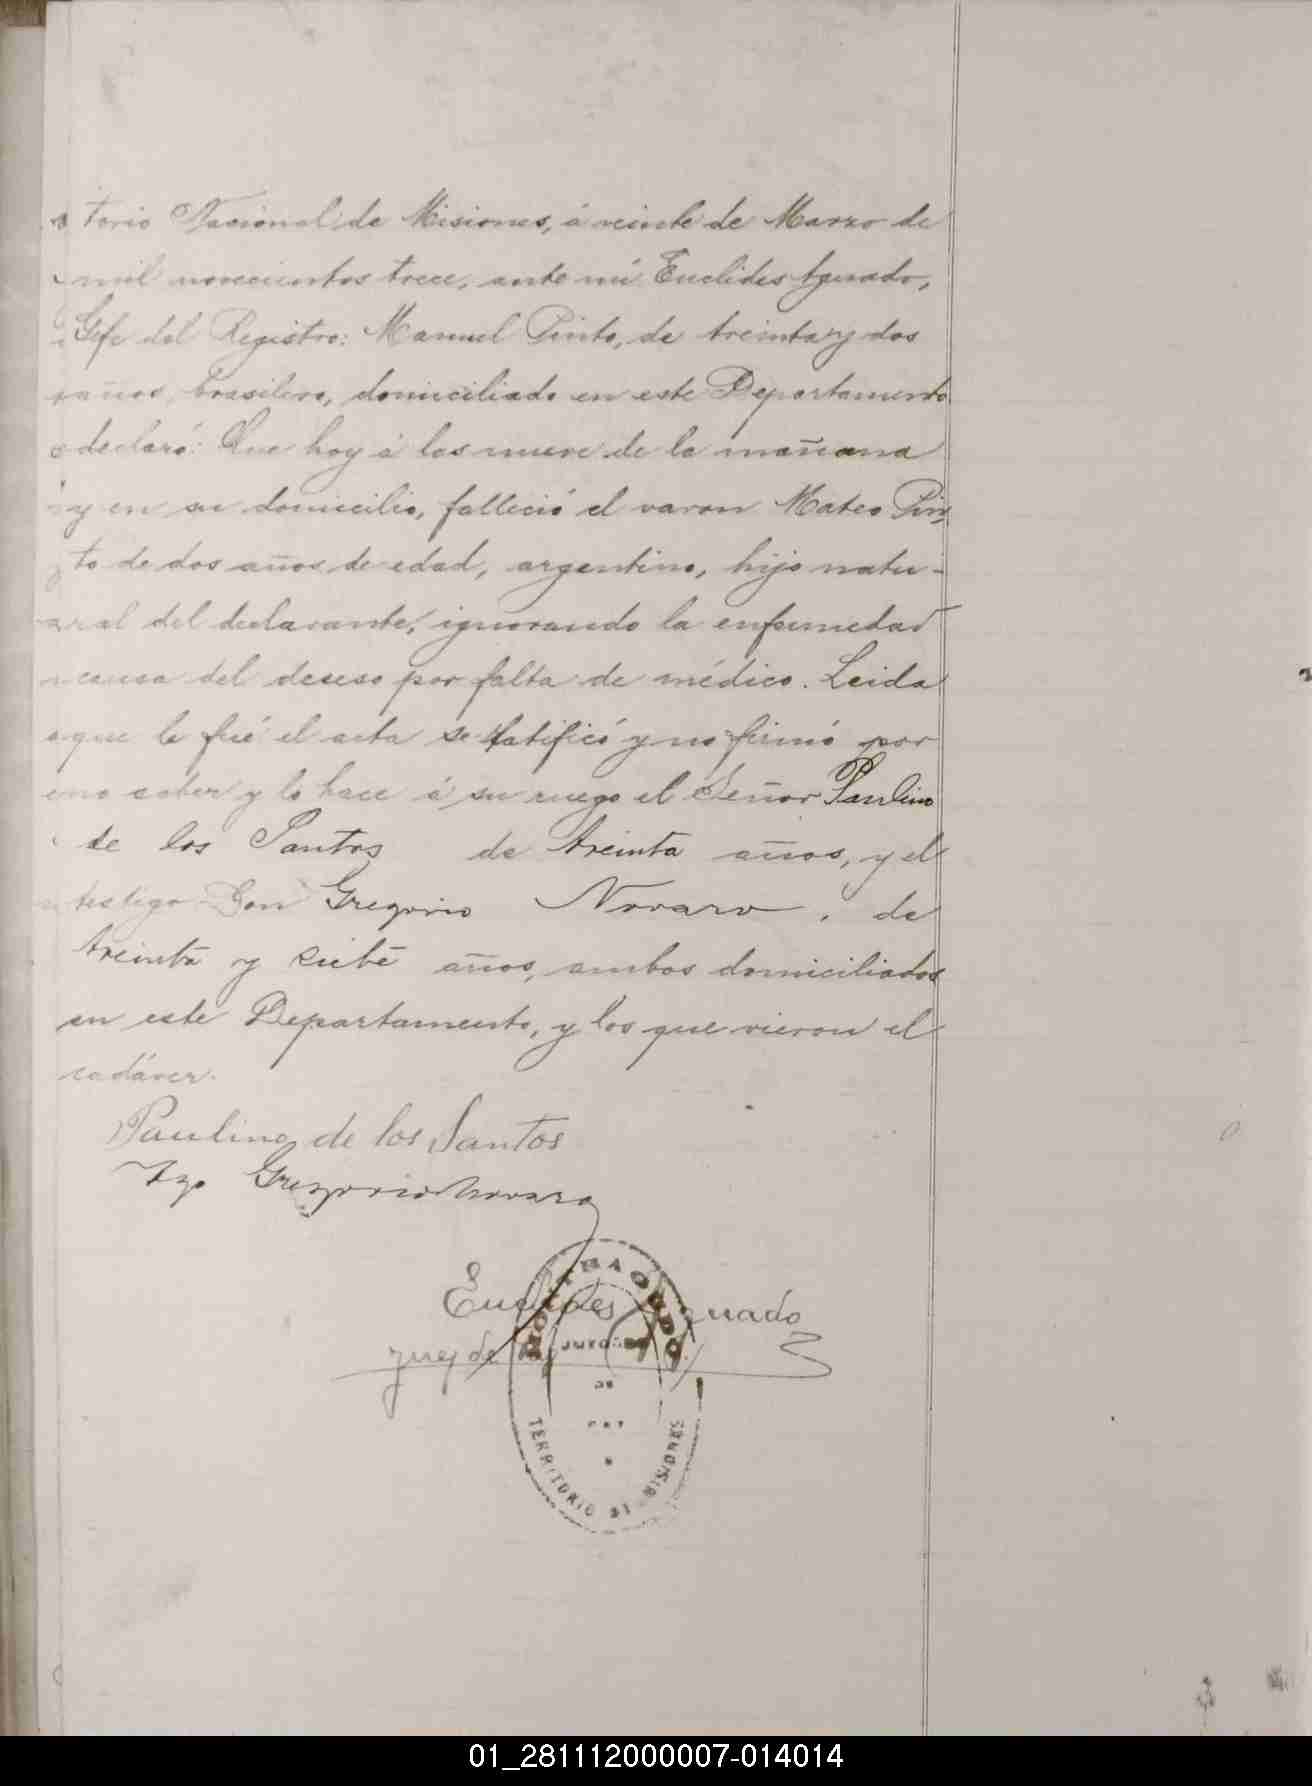 torio Nacional de Misiones, á veinte de Marzo de
mil novecientos trece, ante mí Euclides Aguado,
Gefe del Registro: Manuel Pinto, de treinta y dos
años, brasilero, domiciliado en este Departamento
declaró: Que hoy á las nueve de la mañana
y en su domicilio, falleció el varon Mateo Pin
to de dos años de edad, argentino, hijo natu-
ral del declarante, ignorando la enfermedad
causa del deseso por falta de médico. Leida
que le fué el acta se ratificó y no firmó por
no saber y lo hace á su ruego el Señor Paulino
de los Santos de treinta años, y el
testigo Don Gregorio Novaro, de
treinta y siete años, ambos domiciliados
en este Departamento, y los que vieron el
cadáver.
Paulino de los Santos
Tgo Gregorio Novaro
Euclides Aguado
Juez de Paz
JUZGADO
DE
PAZ
TERRITORIO DE MISIONES
01_281112000007-014014